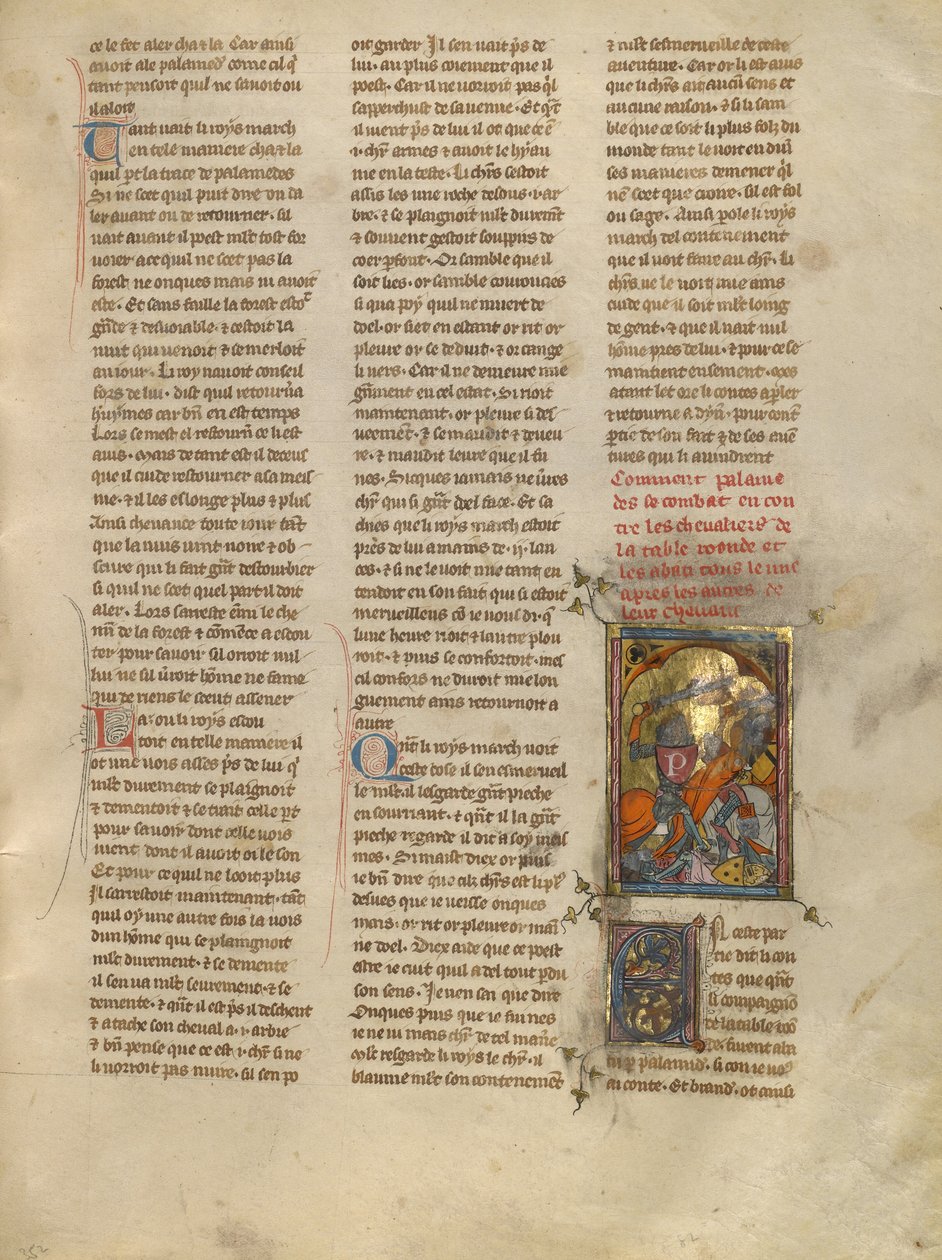 ce le fet aler cha ⁊ la Car ainsi
avoit ale palamed' come cil q̄
tant pensoit quil ne savoit ou
il aloit
Tant vait li roys march
en tele maniere cha ⁊ la
quil p̄t la trace de palamedes
Si ne scet quil puit dire ou da
ler avant ou de retourner. sil
vait avant il poest ml̄t tost for
voier a ce quil ne scet pas la
forest ne onques mais ni avoit
este. Et sans faille la forest esto͛
gn̄de ⁊ desvoiable. ⁊ cestoit la
nuit qui venoit ⁊ se merloit
au jour. Li roy navoit conseil
fors de lui. dist quil retourn̄a
huymes car bn̄ en est temps
Lors se mest el restourn ce li est
avis. Mais de tant est il deceus
que il cuide retourner a sa meis
me. ⁊ il les eslonge plus ⁊ plus
Ainsi chevauce toute jour tāt
que la nuis vint noire ⁊ ob
scure qui li fait gn̄t destourbier
si quil ne scet quel part il doit
aler. Lors sareste ēmi le che
mī de la forest ⁊ cōmēce a escou
ter pour savoir sil orroit nul
lui ne sil v̄roit hōme ne fame
qui de riens le sceut assener
La ou li roys escou
toit en telle maniere il
ot une vois asses p̄s de lui q̄
ml̄t durement se plaignoit
⁊ dementoit ⁊ se traist celle p̄t
pour savoir dont celle vois
vient dont il avoit oi le son
Et pour ce quil ne looit plus
Il sarrestoit maintenant. tāt
quil oy une autre fois la vois
dun hōme qui se plaingnoit
ml̄t durement. ⁊ se demente
il sen va ml̄t seurement. ⁊ se
demente. ⁊ qūt il est p̄s il descent
⁊ atache son cheval a .i. arbre
⁊ bn̄ pense que ce est .i. chr̄ si ne
li vorroit pas nuire. sil sen po
oit garder Il sen vait p̄s de
lui. au plus coiement que il
poest. Car il ne vorroit pas q̄l
sapperchust de sa venue. Et qn̄t
il vient p̄s de lui il ot que ce ē
.i. chr̄ armes ⁊ avoit le hyau
me en la teste. Li chr̄s sestoit
assis les une roche desous .i. ar
bre. ⁊ se plaignoit ml̄t duremt̄
⁊ souvent gestoit souppirs de
coer p̄font. Or samble que il
soit lies. or samble courouces
si qua poy quil ne muert de
doel. or siet en estant or rit or
pleure or se deduit. ⁊ or cange
li vers. Car il ne demeure mie
gn̄ment en cel estat. Si rioit
maintenant. or pleure si del
veemēt. ⁊ se maudit ⁊ deveu
re. ⁊ maudit leure que il fu
nes. Si cques jamais ne v̄res
chr̄ qui si gn̄t doel face. Et sa
chies que li roys march estoit
près de lui a mains de .ij. lan
ces. ⁊ si ne le voit mie tant en
tendoit en son fait qui si estoit
merveilleus cō je vous di. q̄
lune heure rioit ⁊ lautre plou
roit. ⁊ puis se confortoit. mes
cil confors ne duroit mie lon
guement ains retournoit a
autre
Qn̄t li roys march voit
ceste cose il sen esmerveil
le ml̄t. il lesgarde gn̄t pieche
en souriant. ⁊ qn̄t il la gn̄t
pieche regarde il dit a soy meis
mes. Si maist diex or puis
je bn̄ dire que cilz chr̄s est li pl͛
desves que je veisse onques
mais. or rit or pleure or mai
ne doel. Diex aide que ce poest
estre je cuit quil a del tout p̄du
son sens. Je nen sai que dire
Onques puis que je fui nes
je ne vi mais chr̄ de tel mānē
Ml̄t resgarde li roys le chr̄. il
blaume ml̄t son contenement
⁊ mlt̄ sesmerveille de ceste
aventure. Car or li est avis
que li chr̄s ait aucū sens et
aucune raison. ⁊ si li sam
ble que ce soit li plus folz du
monde tant le voit en diū
ses manieres demener q̄l
ne scet que croire. sil est fol
ou sage. Ainsi p̄ole li roys
march del contenement
que il voit faire au chr̄. Li
chr̄s ne le voit mie ains
cuide que il soit ml̄t loing
de gent. ⁊ que il nait nul
hōme pres de lui. ⁊ pour ce se
maintient ensement. Mes
atant let ore li contes a p̄ler
⁊ retourne a dyn̄. pour cont̄
p̄tie de son fait ⁊ de ses avē
tures qui li avindrent
Comment palame
des se combat en con
tre les chevaliers de
la table ronde et
les abati tous le une
apres les autres de
leur chevaux
P
En ceste par
tie dit li con
tes que qn̄t
li compaignō
de la table roō
de. furent aba
tu p̄ palamid'. si con je vo͛
ai conte. Et brand'. ot ainsi
252
82